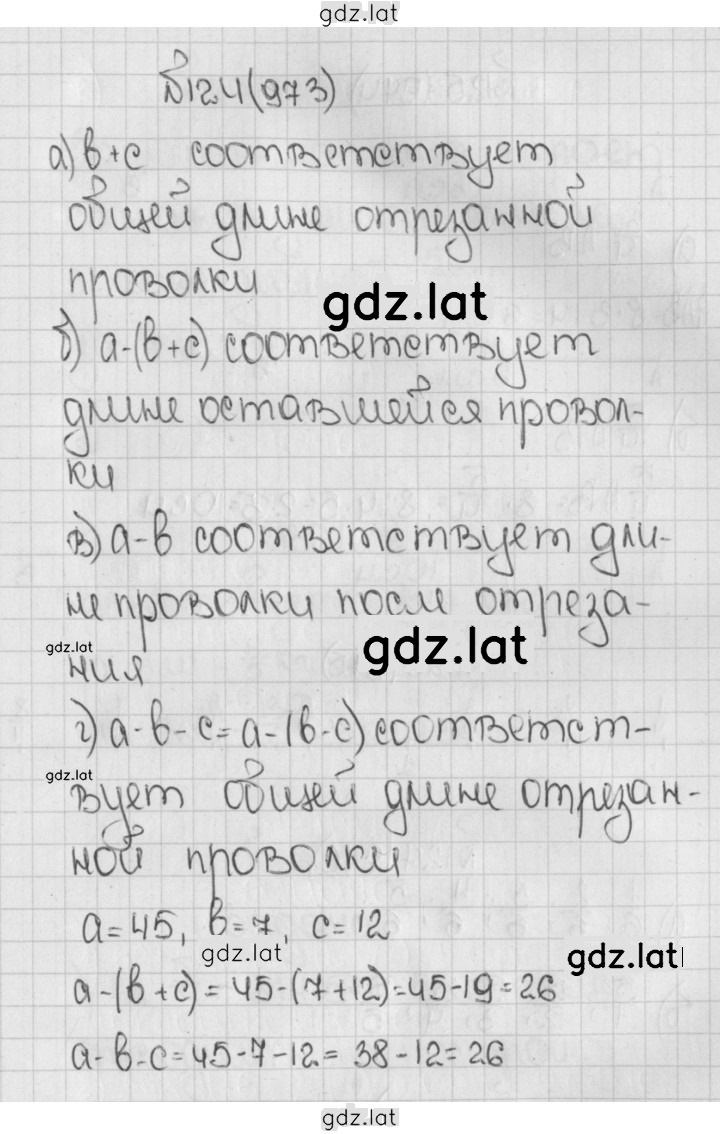 gdz.lat
№124(973)
а) в+с соответствует
общей длине отрезанной
проволки
gdz.lat
б) а-(в+с) соответствует
длине оставшейся провол-
ки
в) а-в соответствует дли-
не проволки после отреза-
gdz.lat
gdz.lat
ния
г) а-в-с=а-(в-с) соответст-
gdz.lat
вует общей длине отрезан-
ной проволки
а=45, в=7, с=12
gdz.lat
gdz.lat
а-(в+с)=45-(7+12)=45-19=26
а-в-с=45-7-12=38-12=26
gdz.lat